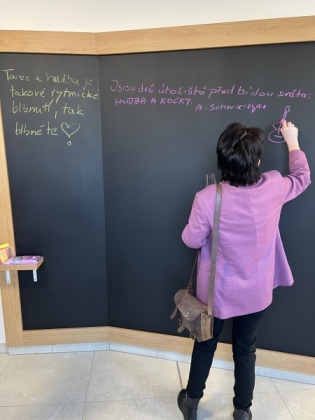 Tanec a hudba je
takové rytmické
blbnutí, tak
blbněte
Jsou dvě útočiště před bídou světa:
HUDBA A KOČKY.
A. Schweitzer